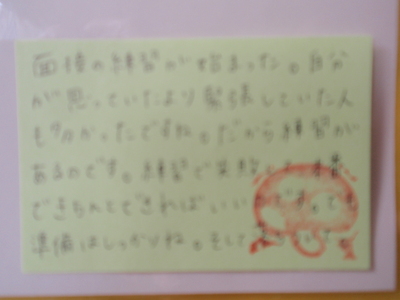 面接の練習が始まった。自分
が思っていたより緊張していた人
も多かったですね。だから練習が
あるのです。練習で失敗した本番
できちんとできればいいのです。でも
準備はしっかりね。そして